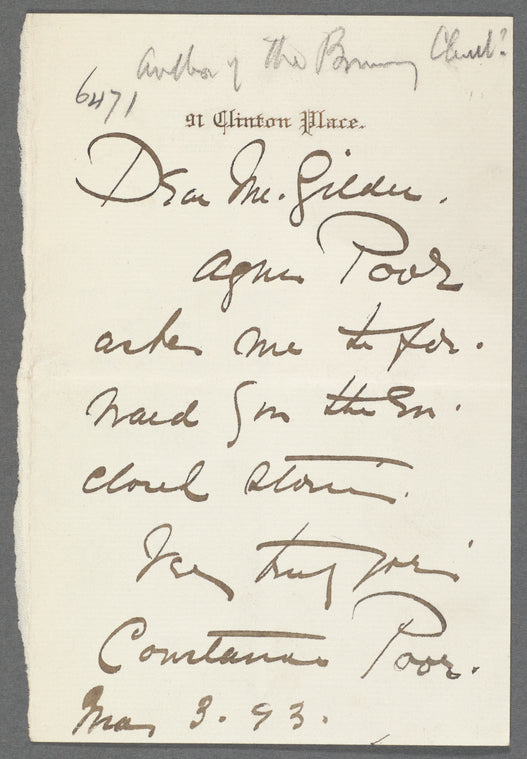 Author of the Burning
6471
91 Clinton Place.
Dear Mr. Gilder.
Agnes Poor
asks me to for-
ward you the en-
closed stories.
Very truly yours
Constance Poor.
3. 93.